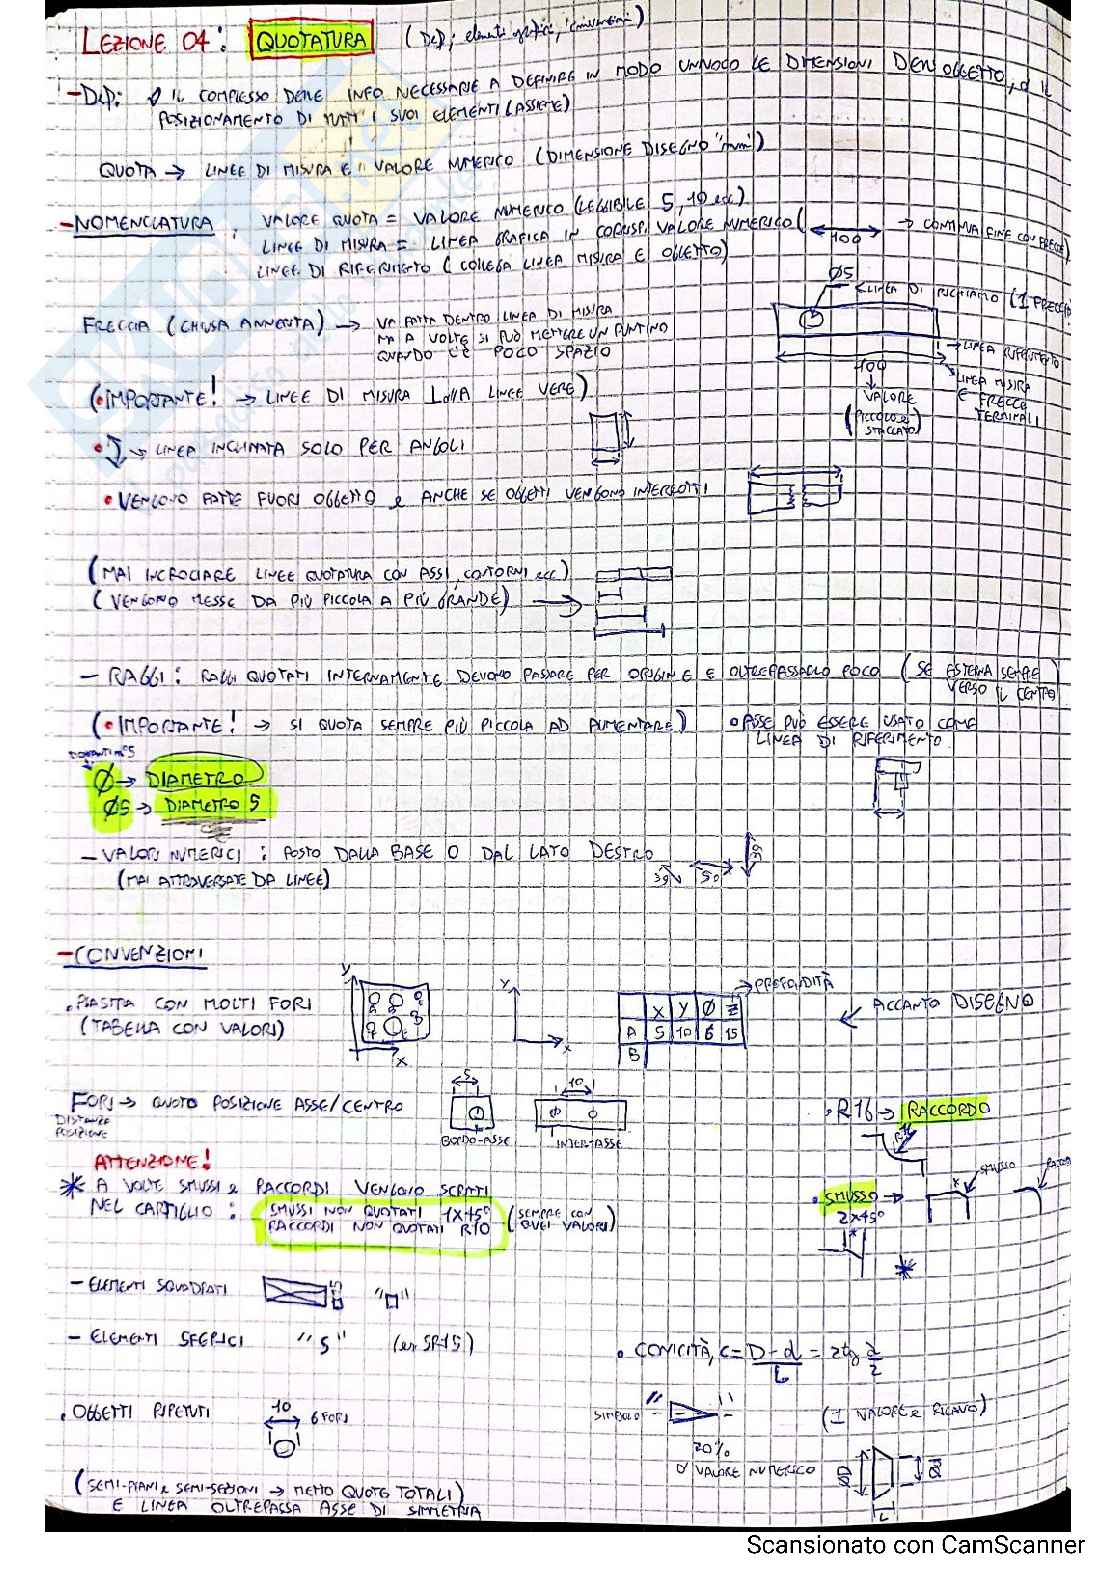 LEZIONE 04: QUOTATURA (Def; elementi grafici, convenzioni)
- Def: È IL COMPLESSO DELLE INFO NECESSARIE A DEFINIRE IN MODO UNIVOCO LE DIMENSIONI DELL'OGGETTO, e IL
POSIZIONAMENTO DI TUTTI I SUOI ELEMENTI (ASSIEME)
QUOTA → LINEE DI MISURA E IL VALORE NUMERICO (DIMENSIONE DISEGNO "mm")
- NOMENCLATURA: VALORE QUOTA = VALORE NUMERICO (LEGGIBILE 5, 10 ecc)
LINEE DI MISURA = LINEA GRAFICA IN CORRISP. VALORE NUMERICO ( 100 → CONTINUA FINE CON FRECCE)
LINEE DI RIFERIMENTO (COLLEGA LINEA MISURA E OGGETTO)
Ø5
LINEA DI RICHIAMO (1 FRECCIA)
FRECCIA (CHIUSA ANNERITA) → VA FATTA DENTRO LINEA DI MISURA
MA A VOLTE SI PUÒ METTERE UN PUNTINO
QUANDO C'È POCO SPAZIO
→ LINEA RIFERIMENTO
100
LINEA MISURA
E FRECCE
TERMINALI
VALORE
(PICCOLO e
STACCATO)
(• IMPORTANTE! → LINEE DI MISURA ⊥ alla LINEE VERE)
• → LINEA INCLINATA SOLO PER ANGOLI
• VENGONO FATTE FUORI OGGETTO e ANCHE SE OGGETTI VENGONO INTERROTTI
(MAI INCROCIARE LINEE QUOTATURA CON ASSI, CONTORNI ecc)
(VENGONO MESSE DA PIÙ PICCOLA A PIÙ GRANDE) →
- RAGGI: RAGGI QUOTATI INTERNAMENTE DEVONO PASSARE PER ORIGINE E OLTREPASSARLO POCO (SE ESTERNA SEMPRE
VERSO IL CENTRO)
(• IMPORTANTE! → SI QUOTA SEMPRE PIÙ PICCOLA AD AUMENTARE) • ASSE PUÒ ESSERE USATO COME
LINEA DI RIFERIMENTO
Ø → DIAMETRO
Ø5 → DIAMETRO 5
- VALORI NUMERICI: POSTO DALLA BASE O DAL LATO DESTRO
39 50 39
(MAI ATTRAVERSATE DA LINEE)
- CONVENZIONI
• PIASTRA CON MOLTI FORI
(TABELLA CON VALORI)
Y X
Y X
→ PROFONDITÀ
X Y Ø Z
A 5 10 6 15
B
← ACCANTO DISEGNO
FORI → QUOTO POSIZIONE ASSE/CENTRO
DISTANZA
POSIZIONE
5 10
BORDO-ASSE INTER-ASSE
• R16 → RACCORDO
R16
ATTENZIONE!
* A VOLTE SMUSSI e RACCORDI VENGONO SCRITTI
NEL CARTIGLIO: SMUSSI NON QUOTATI 1X45°
RACCORDI NON QUOTATI R10
(SEMPRE CON
QUEI VALORI)
• SMUSSO →
2X45°
SMUSSO
*
- ELEMENTI SQUADRATI "□"
- ELEMENTI SFERICI "S" (es. SR15)
• CONICITÀ, C = D - d / L = 2tg α/2
• OGGETTI RIPETUTI
10
6 FORI
SIMBOLO
(1 VALORE e RICAVO)
20%
VALORE NUMERICO
ØD Ød
L
(SEMI-PIANI e SEMI-SEZIONI → METTO QUOTE TOTALI)
E LINEA OLTREPASSA ASSE DI SIMMETRIA
Scansionato con CamScanner